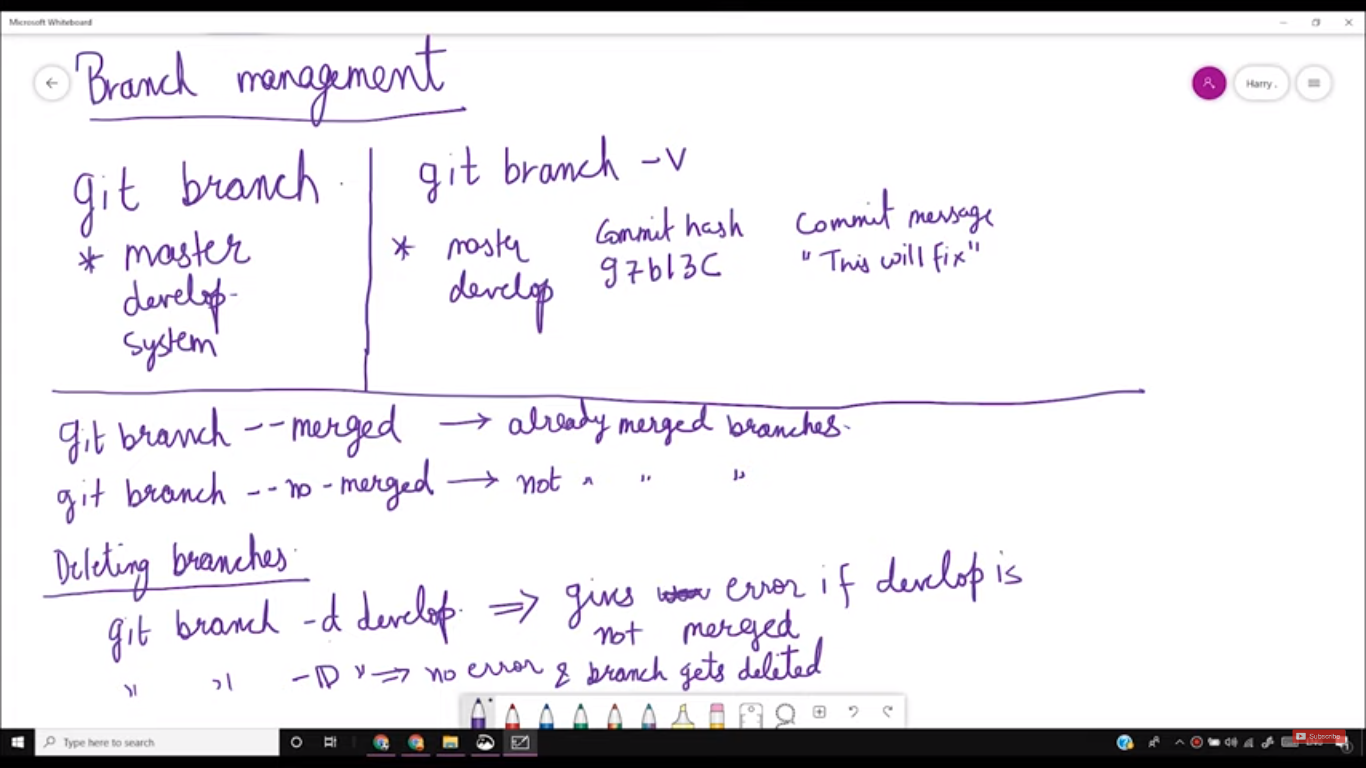 Microsoft Whiteboard
Branch management
Harry .
git branch
* master
develop
system
git branch -v
Commit hash Commit message
* master 97b13C "This will fix"
develop
git branch --merged → already merged branches.
git branch --no-merged → not " " "
Deleting branches
git branch -d develop ⇒ gives error if develop is
not merged
" " -D " ⇒ no error & branch gets deleted
Type here to search
Subscribe